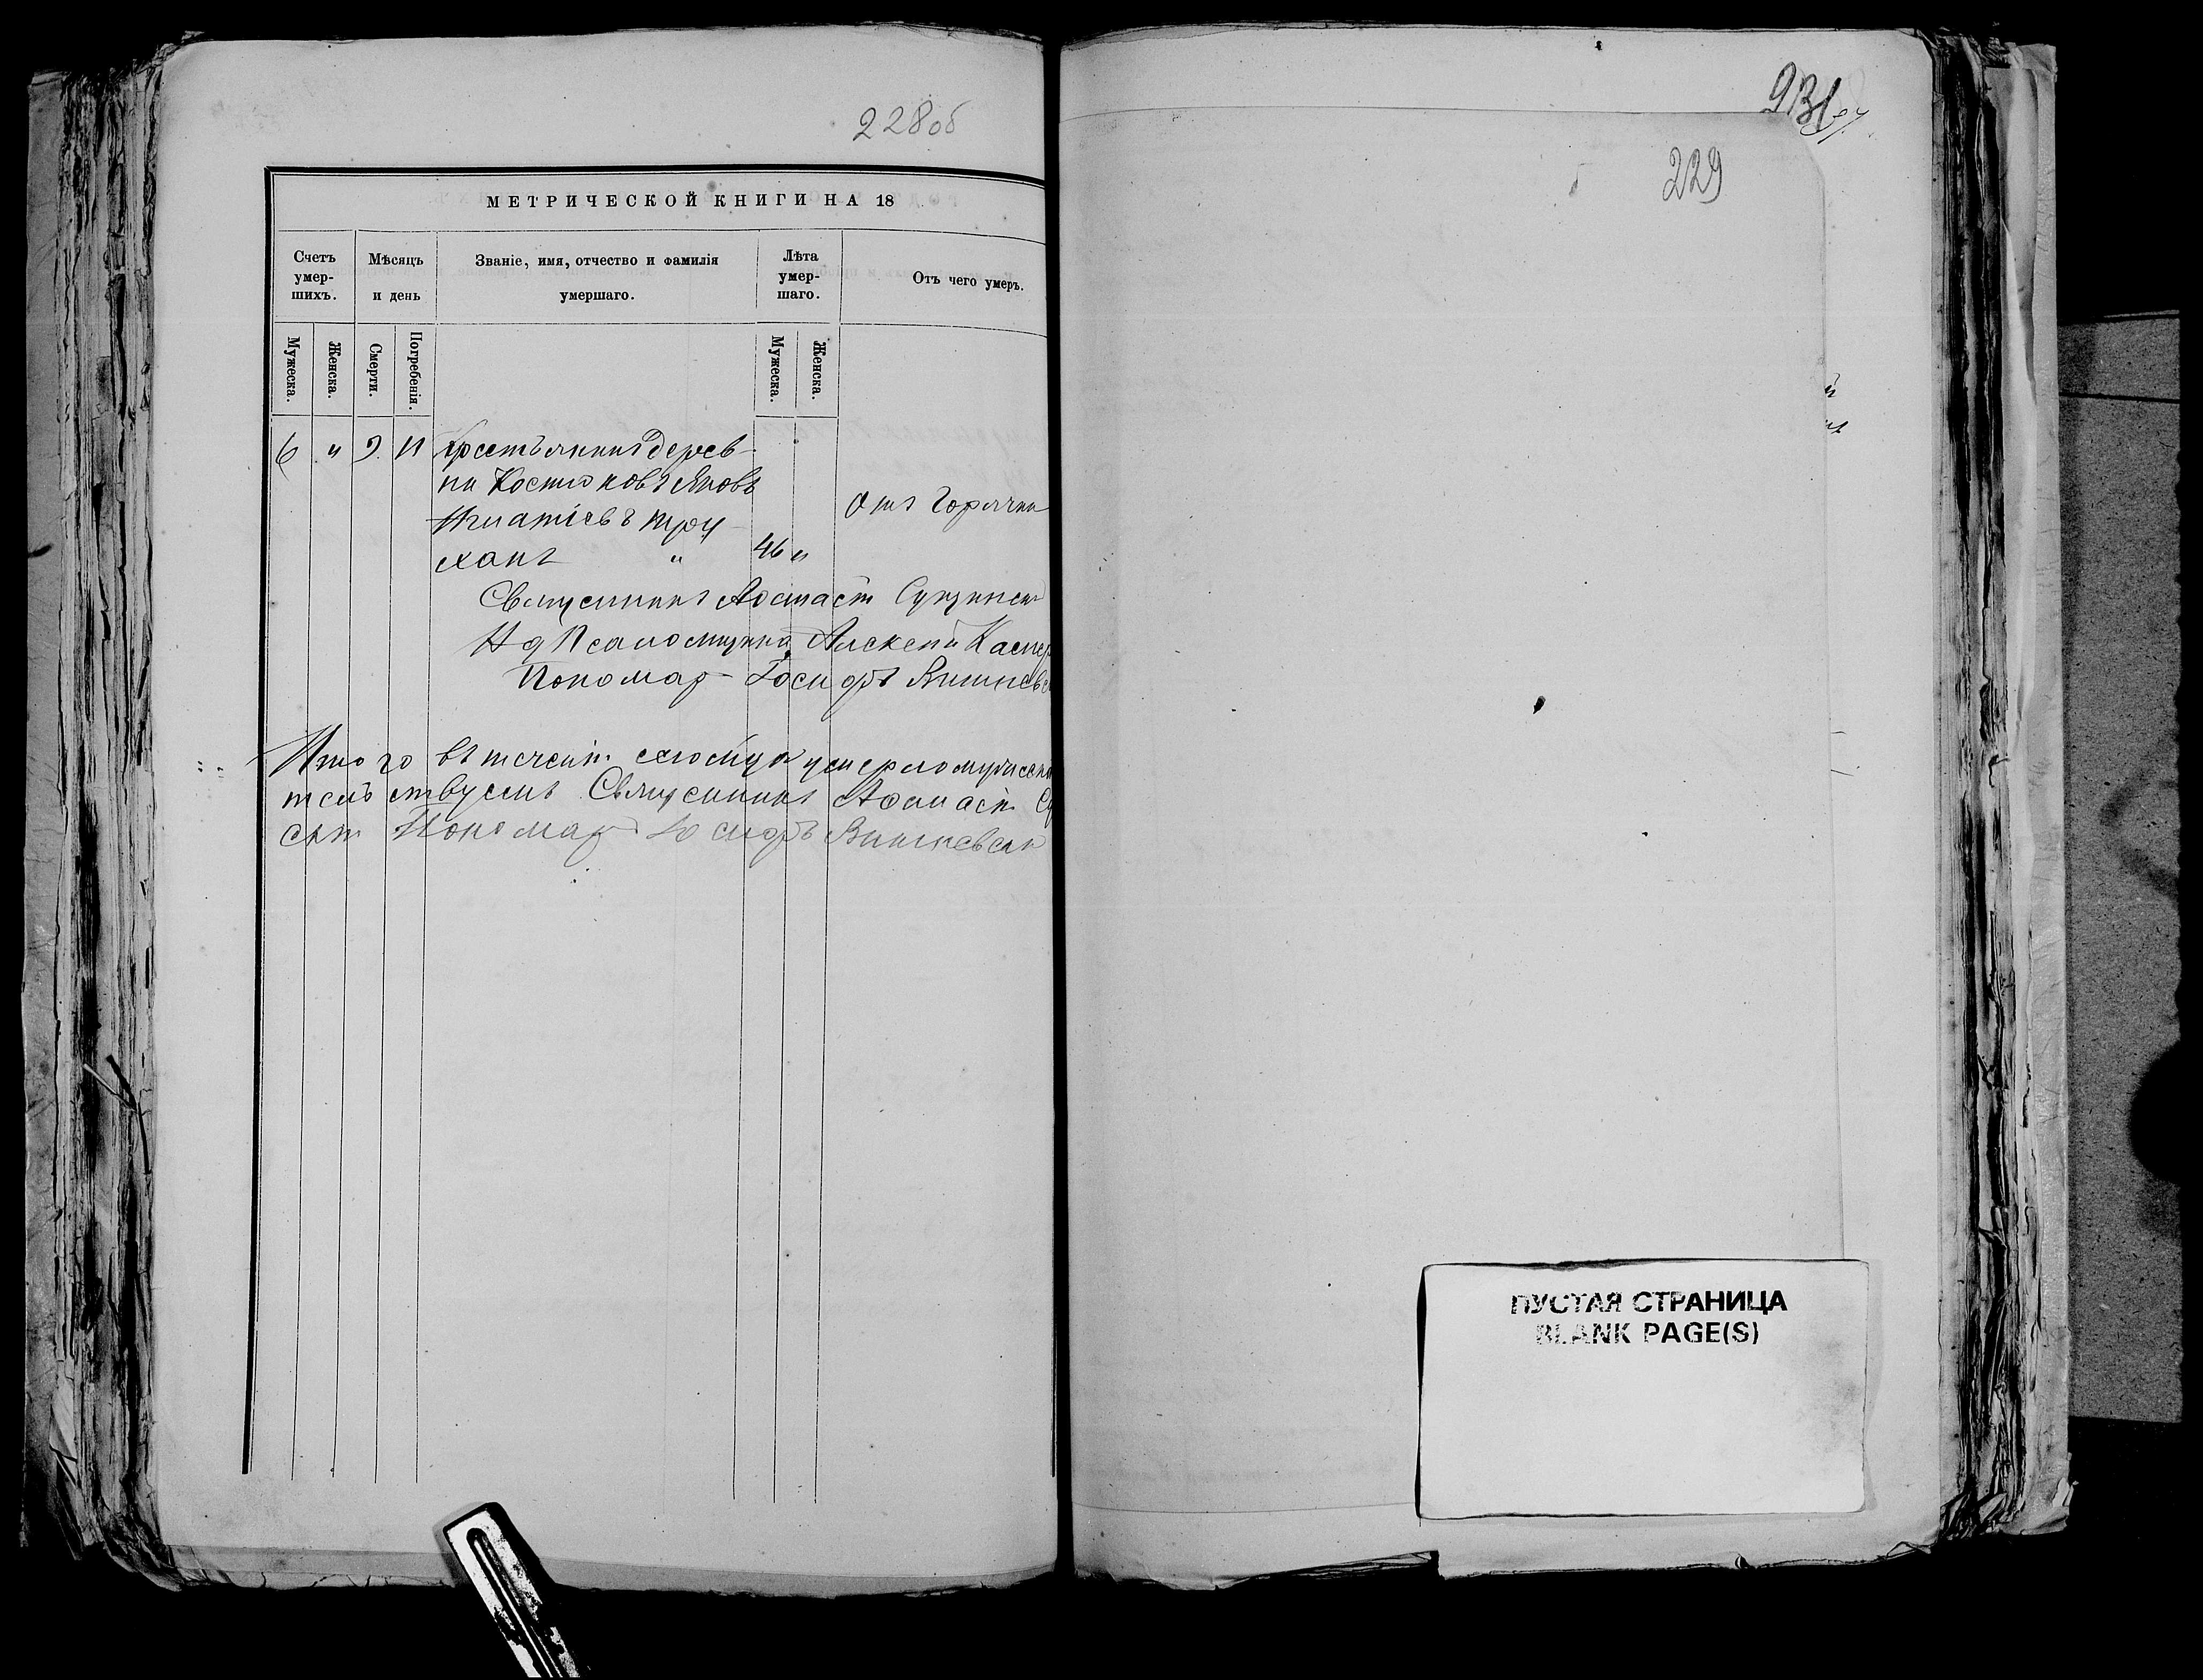 228об
МЕТРИЧЕСКОЙ КНИГИ НА 18
Счетъ умер-шихъ.
Мѣсяцъ и день
Званіе, имя, отчество и фамилія умершаго.
Лѣта умер-шаго.
Отъ чего умеръ.
Мужеска.
Женска.
Смерти.
Погребенія.
Мужеска.
Женска.
6 " 9 11 Крестьянинъ дерев-
ни Костюковъ Яковъ
Игнатіевъ Тру-
ханъ " 46 "
Отъ Горячки
Священникъ
Псаломщика Алексей
Пономар Іосифъ Вишневс
Итого въ течени умерло
Священникъ
Пономар Іосифъ Вишневски
931
229
ПУСТАЯ СТРАНИЦА
BLANK PAGE(S)